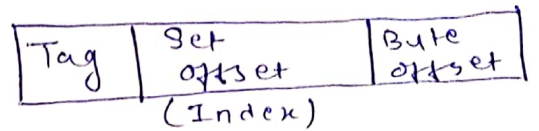 Tag
Set
offset
Byte
offset
(Index)